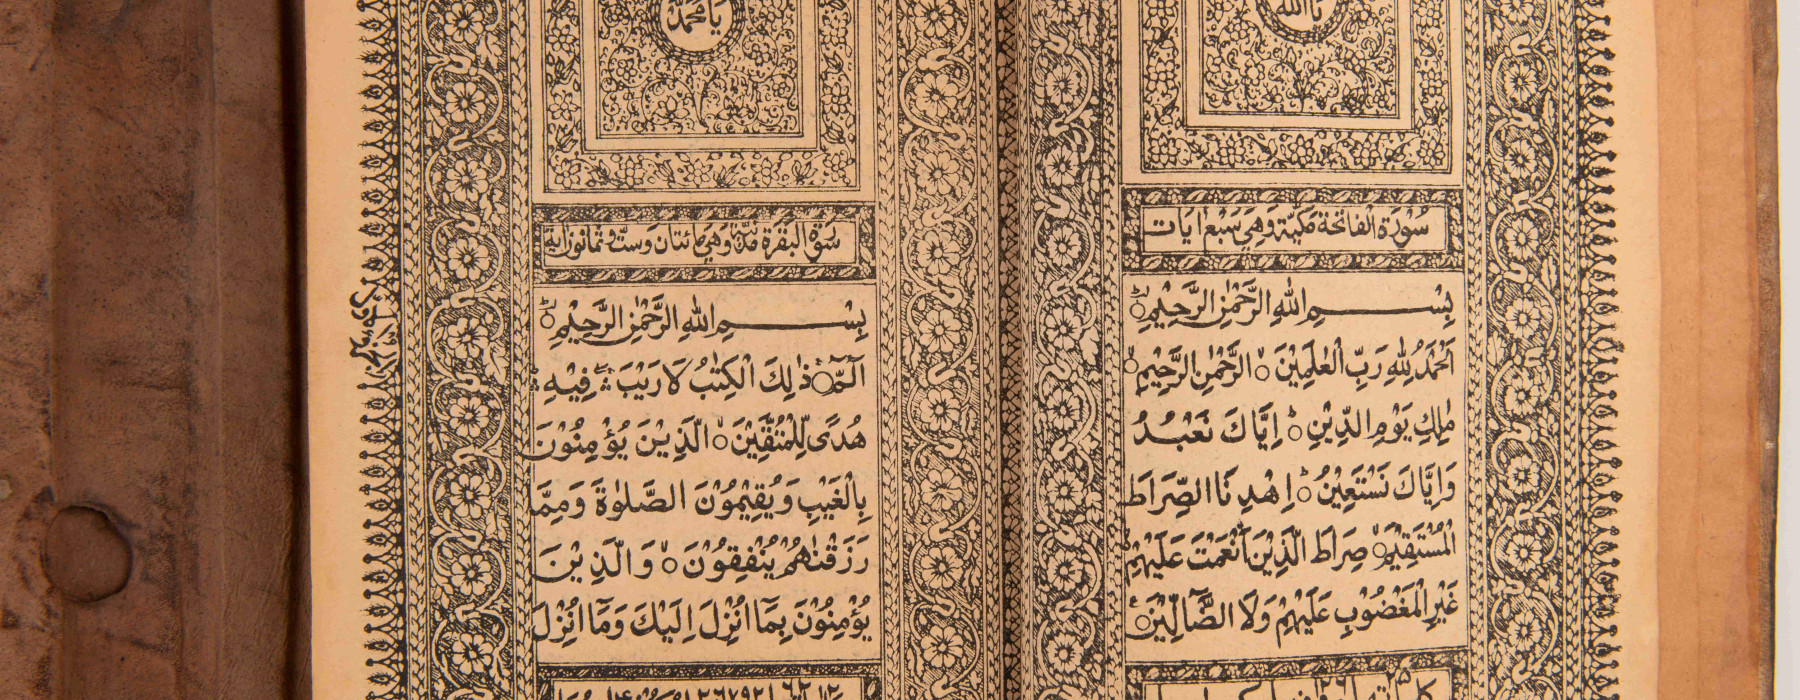 يا الله
سورة الفاتحة مكية وهي سبع ايات
بِسْمِ اللهِ الرَّحْمٰنِ الرَّحِيْمِ
اَلْحَمْدُ لِلّٰهِ رَبِّ الْعٰلَمِيْنَ ۝ الرَّحْمٰنِ الرَّحِيْمِ ۝
مٰلِكِ يَوْمِ الدِّيْنِ ۝ اِيَّاكَ نَعْبُدُ
وَاِيَّاكَ نَسْتَعِيْنُ ۝ اِهْدِنَا الصِّرَاطَ
الْمُسْتَقِيْمَ ۝ صِرَاطَ الَّذِيْنَ اَنْعَمْتَ عَلَيْهِمْ
غَيْرِ الْمَغْضُوْبِ عَلَيْهِمْ وَلَا الضَّآلِّيْنَ ۝
يا محمد
سورة البقرة مدنية وهي مائتان وست وثمانون اية
بِسْمِ اللهِ الرَّحْمٰنِ الرَّحِيْمِ
الٓمّٓ ۝ ذٰلِكَ الْكِتٰبُ لَا رَيْبَ ۛ فِيْهِ ۛ
هُدًى لِّلْمُتَّقِيْنَ ۝ الَّذِيْنَ يُؤْمِنُوْنَ
بِالْغَيْبِ وَيُقِيْمُوْنَ الصَّلٰوةَ وَمِمَّا
رَزَقْنٰهُمْ يُنْفِقُوْنَ ۝ وَالَّذِيْنَ
يُؤْمِنُوْنَ بِمَآ اُنْزِلَ اِلَيْكَ وَمَآ اُنْزِلَ